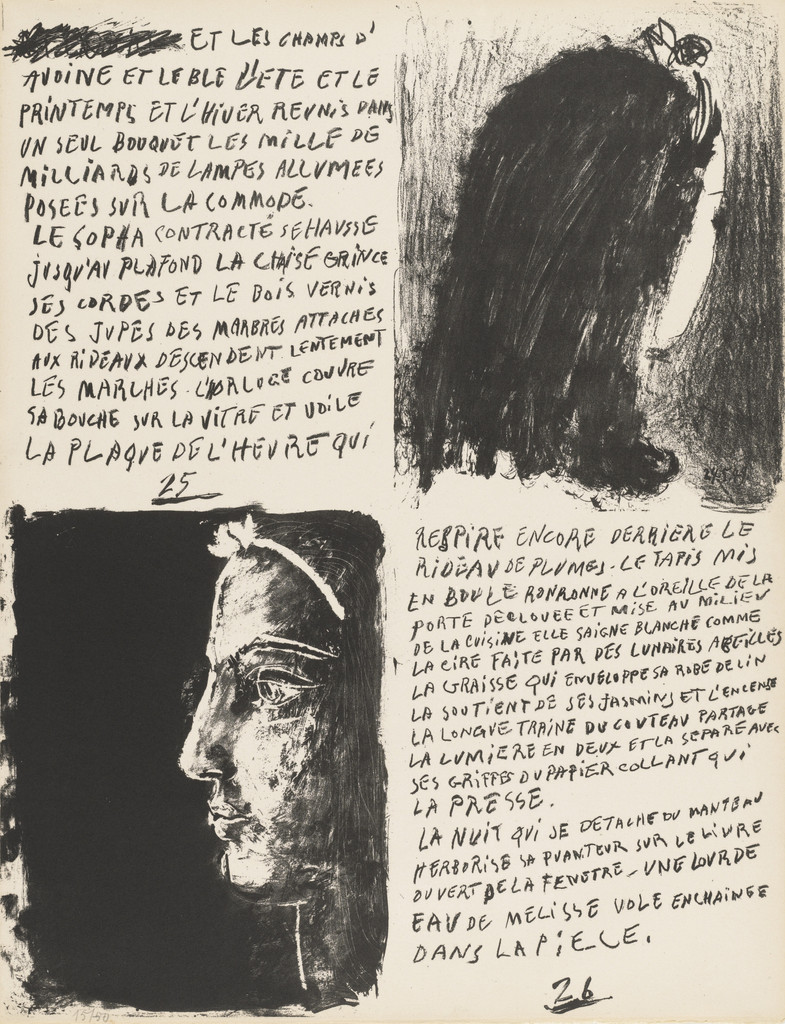 ET LES CHAMPS D'
AVOINE ET LE BLE L'ETE ET LE
PRINTEMPS ET L'HIVER REUNIS DANS
UN SEUL BOUQUET LES MILLE DE
MILLIARDS DE LAMPES ALLUMEES
POSEES SUR LA COMMODE.
LE SOPHA CONTRACTÉ SE HAUSSE
JUSQU'AU PLAFOND LA CHAISE GRINCE
SES CORDES ET LE BOIS VERNIS
DES JUPES DES MARBRES ATTACHES
AUX RIDEAUX DESCENDENT LENTEMENT
LES MARCHES. L'ORLOGE COUVRE
SA BOUCHE SUR LA VITRE ET VOILE
LA PLAQUE DE L'HEURE QUI
25
RESPIRE ENCORE DERRIERE LE
RIDEAU DE PLUMES. LE TAPIS MIS
EN BOULE RONRONNE A L'OREILLE DE LA
PORTE DECLOUEE ET MISE AU MILIEU
DE LA CUISINE ELLE SAIGNE BLANCHE COMME
LA CIRE FAITE PAR DES LUNAIRES ABEILLES
LA GRAISSE QUI ENVELOPPE SA ROBE DE LIN
LA SOUTIENT DE SES JASMINS ET L'ENCENSE
LA LONGUE TRAINE DU COUTEAU PARTAGE
LA LUMIERE EN DEUX ET LA SEPARE AVEC
SES GRIFFES DU PAPIER COLLANT QUI
LA PRESSE.
LA NUIT QUI SE DETACHE DU MANTEAU
HERBORISE SA PUANTEUR SUR LE LIVRE
OUVERT DE LA FENETRE - UNE LOURDE
EAU DE MELISSE VOLE ENCHAINEE
DANS LA PIECE.
26
15/50